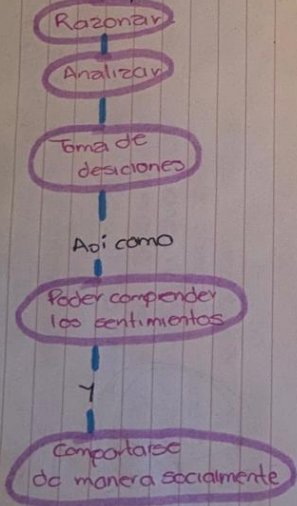 Razonar
Analizar
Toma de
desiciones
Asi como
Poder comprender
los sentimientos
Y
Comportarse
de manera socialmente